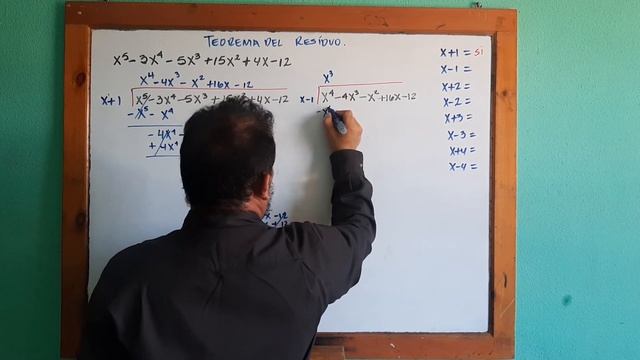 TEOREMA DEL RESIDUO.
x⁵-3x⁴-5x³+15x²+4x-12
x⁴-4x³-x²+16x-12
x+1 x⁵-3x⁴-5x³+15x²+4x-12
-x⁵-x⁴
-4x⁴
+4x⁴
x-12
x³
x-1 x⁴-4x³-x²+16x-12
x+1 = SI
x-1 =
x+2 =
x-2 =
x+3 =
x-3 =
x+4 =
x-4 =